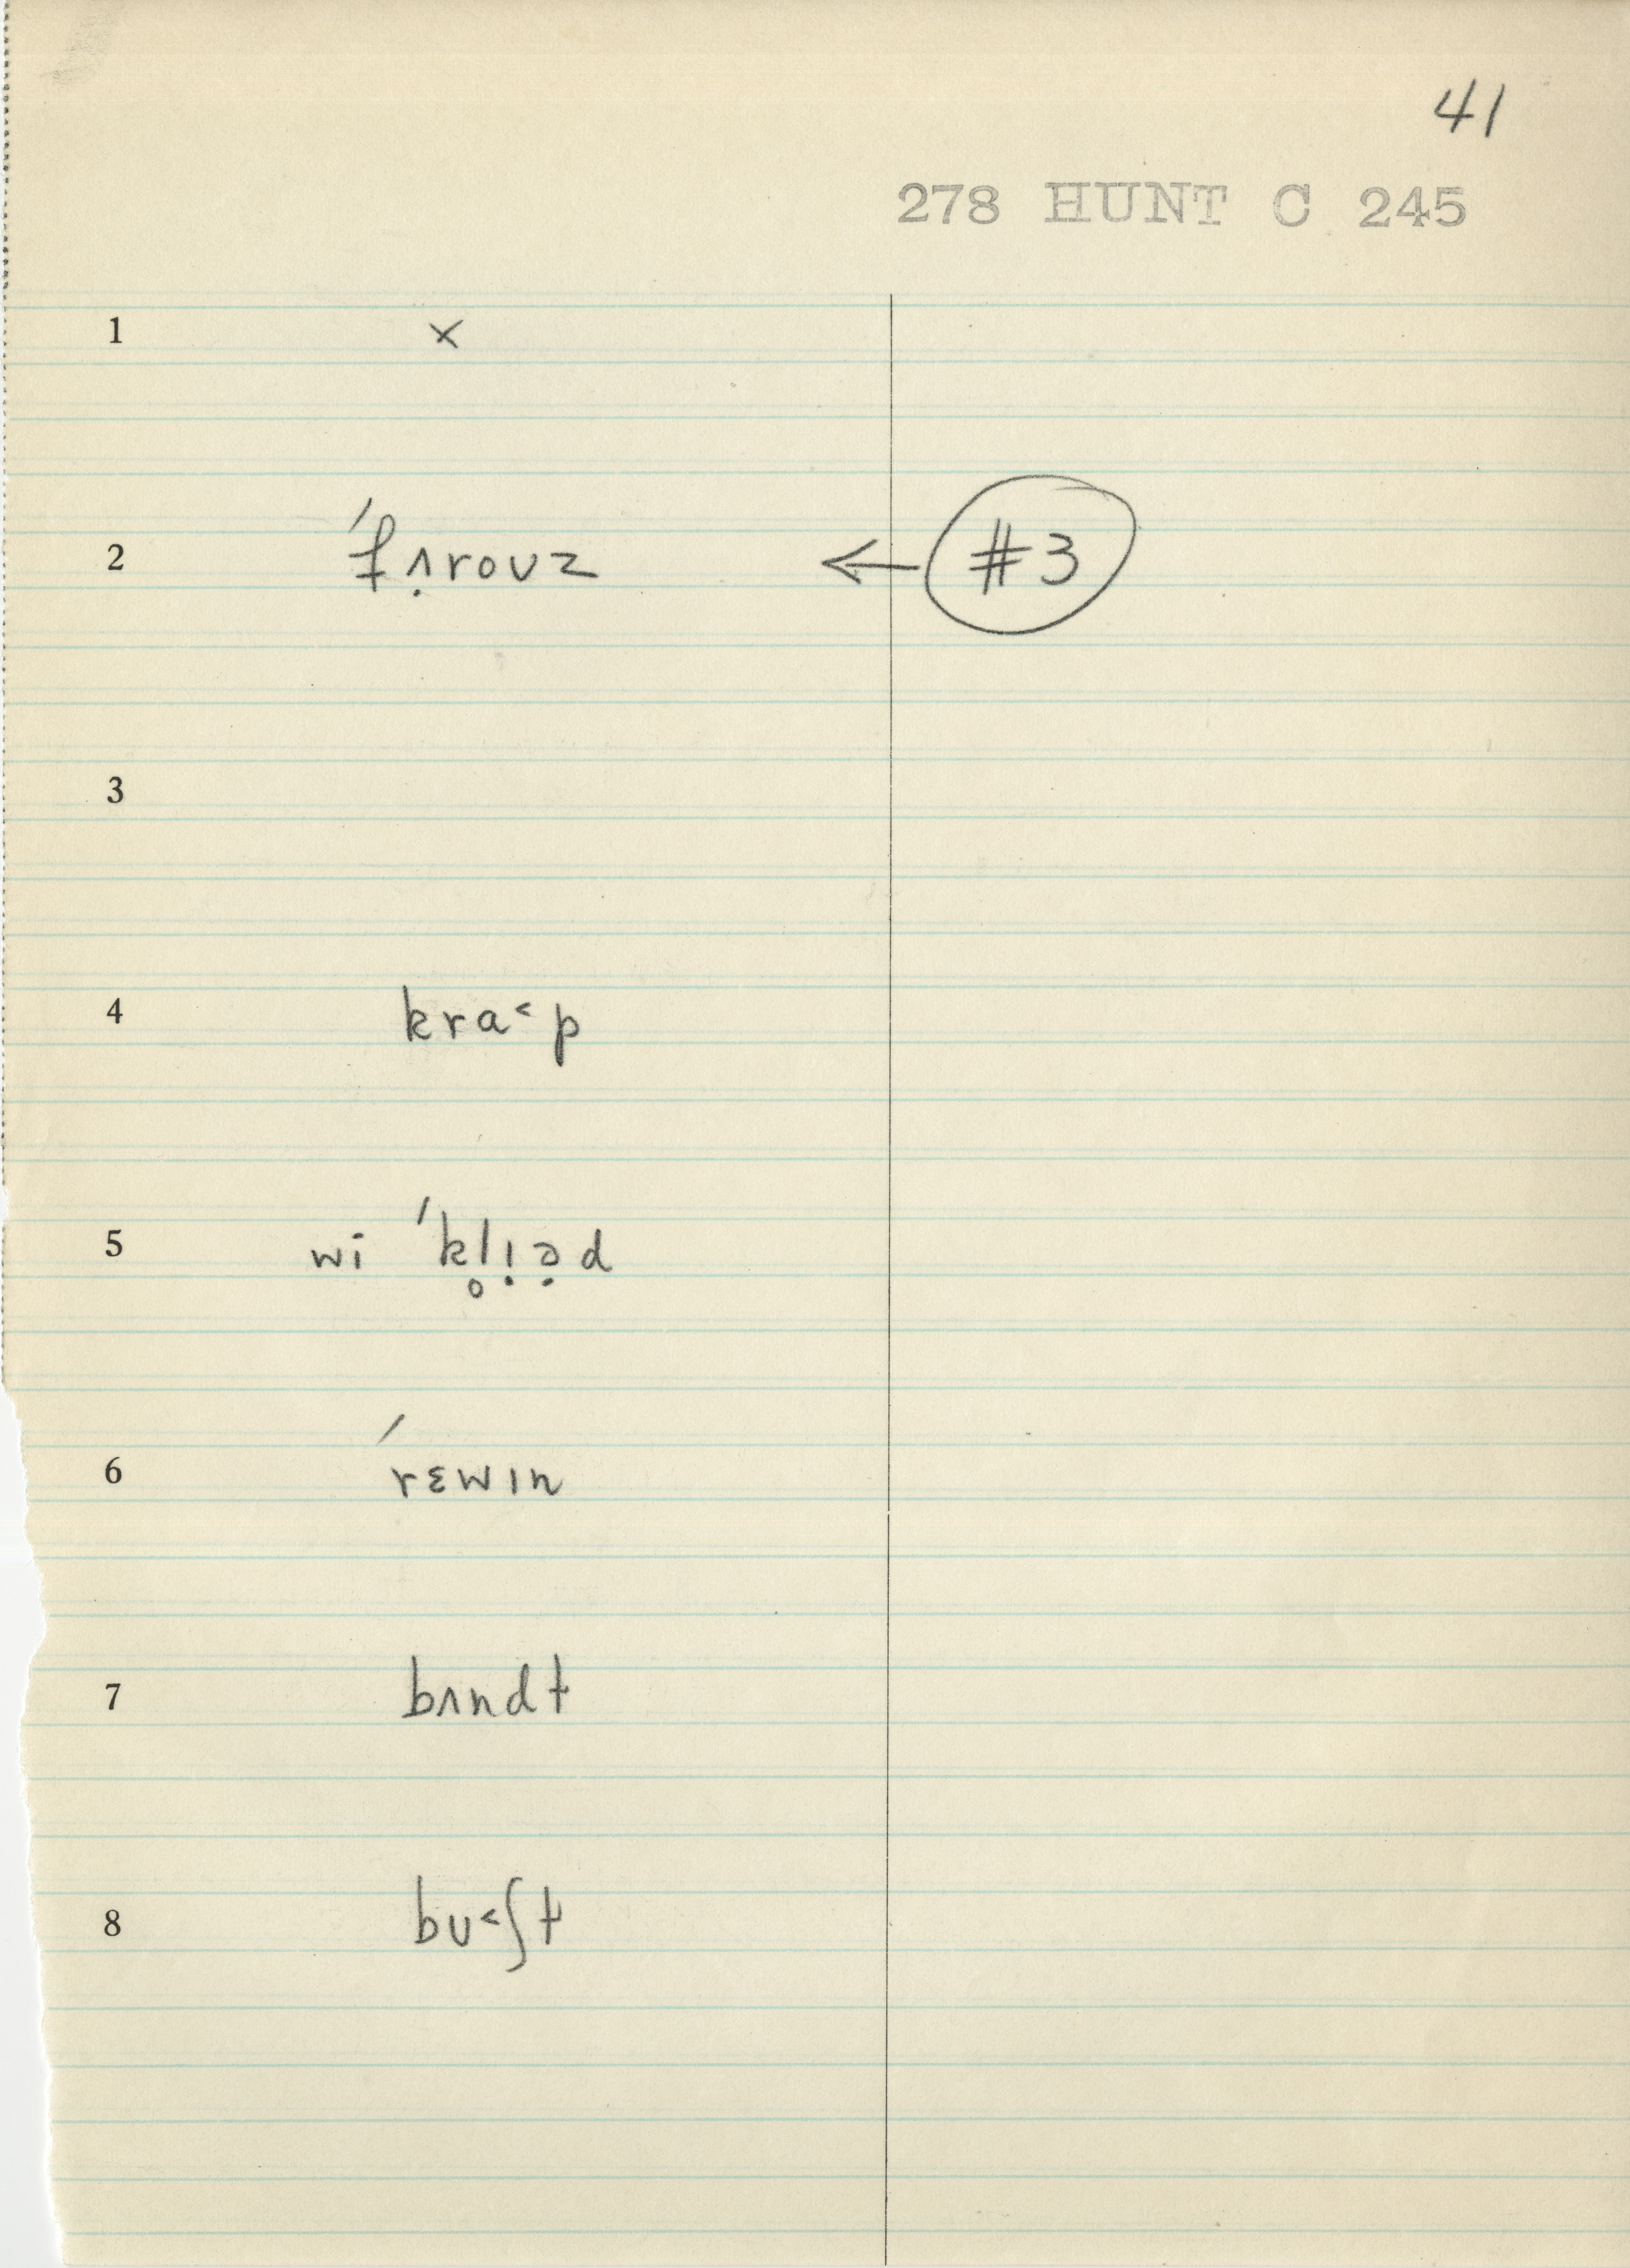 41
278 HUNT C 245
1 x
2 ˈfʌ̣roᴜz ← #3
3
4 kra˂p
5 wi ˈkl̥ɪ̣ə̣d
6 ˈrɛwɪn
7 bʌndt
8 bᴜ˂ʃt